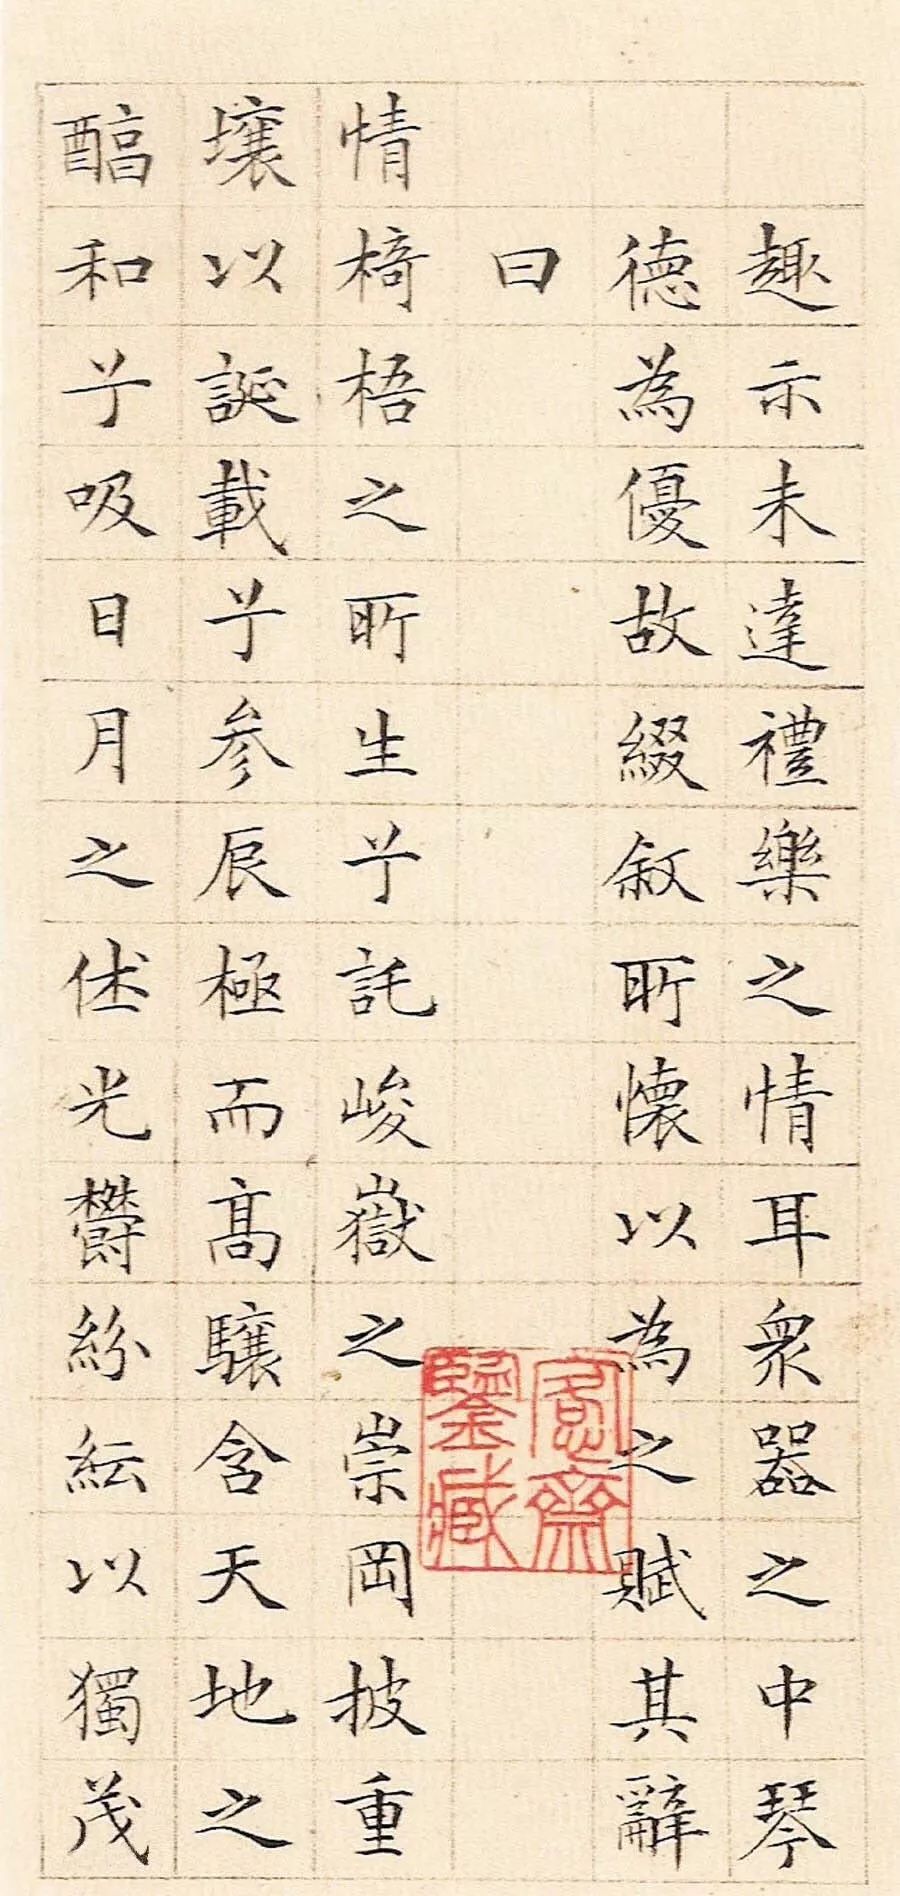 趣示未達禮樂之情耳眾器之中琴
德為優故綴敘所懷以為之賦其辭
曰
情椅梧之所生兮託峻嶽之崇岡披重
壤以誕載兮參辰極而髙驤含天地之
醕和兮吸日月之休光鬱紛紜以獨茂
愙齋鑒藏